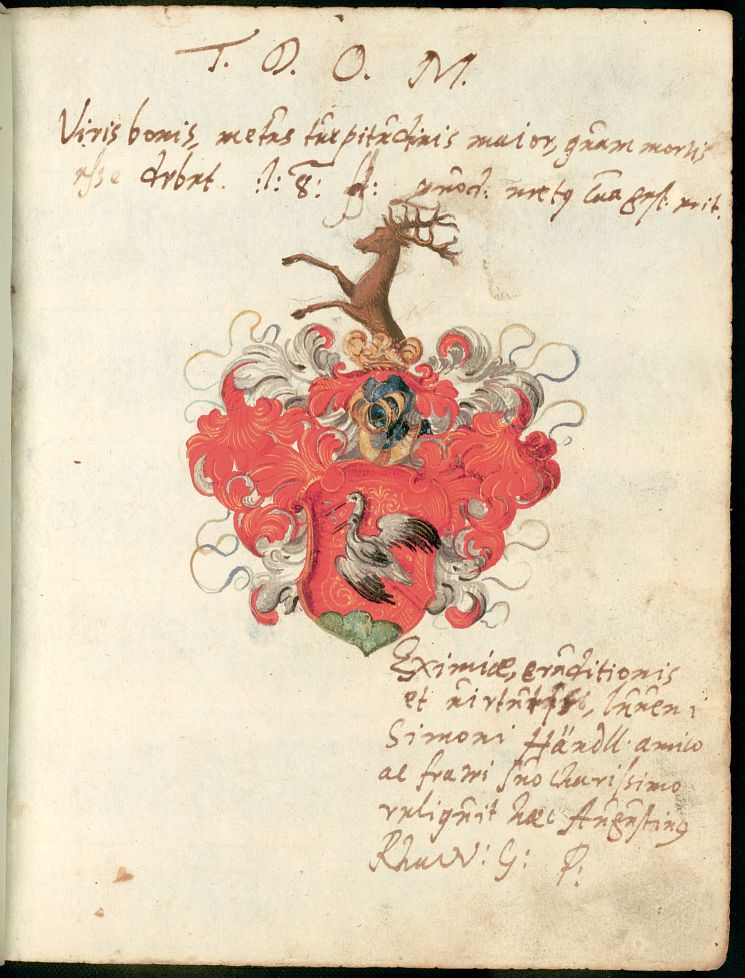 T. D. O. M.
Viris bonis, metus turpitudinis maior, quam mortis
esse debet. l: 8: ff: quod: metq cau gest: erit.
Eximiæ, eruditionis
et uirtutis, Iuueni
Simoni Händll amico
ac fratri suo charissimo
reliquit hæc Augustinq
Rhaw: G: P: